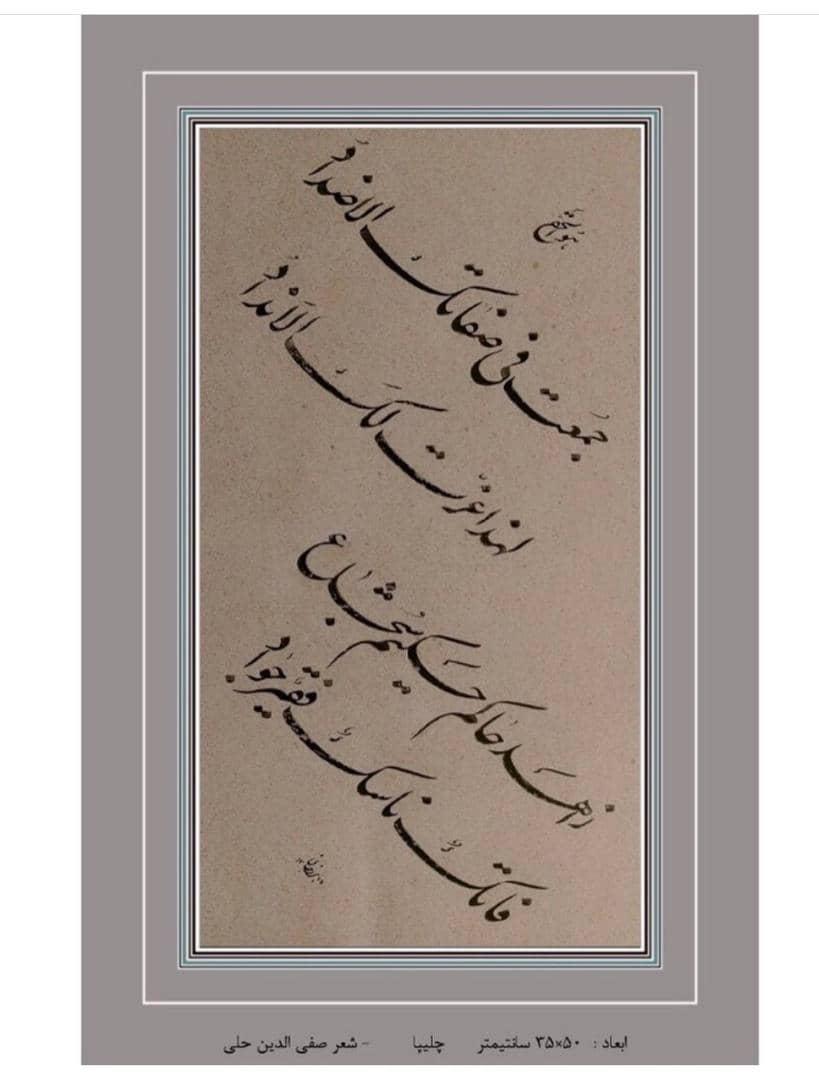 جُمعت في صفاتك الاضدادُ
لهذا عزّت لك الاَندادُ
زاهد حاكم حكيم شجاع
فاتك ناسك فقير جواد
ابعاد : ۵۰×۳۵ سانتیمتر چلیپا - شعر صفی الدین حلی